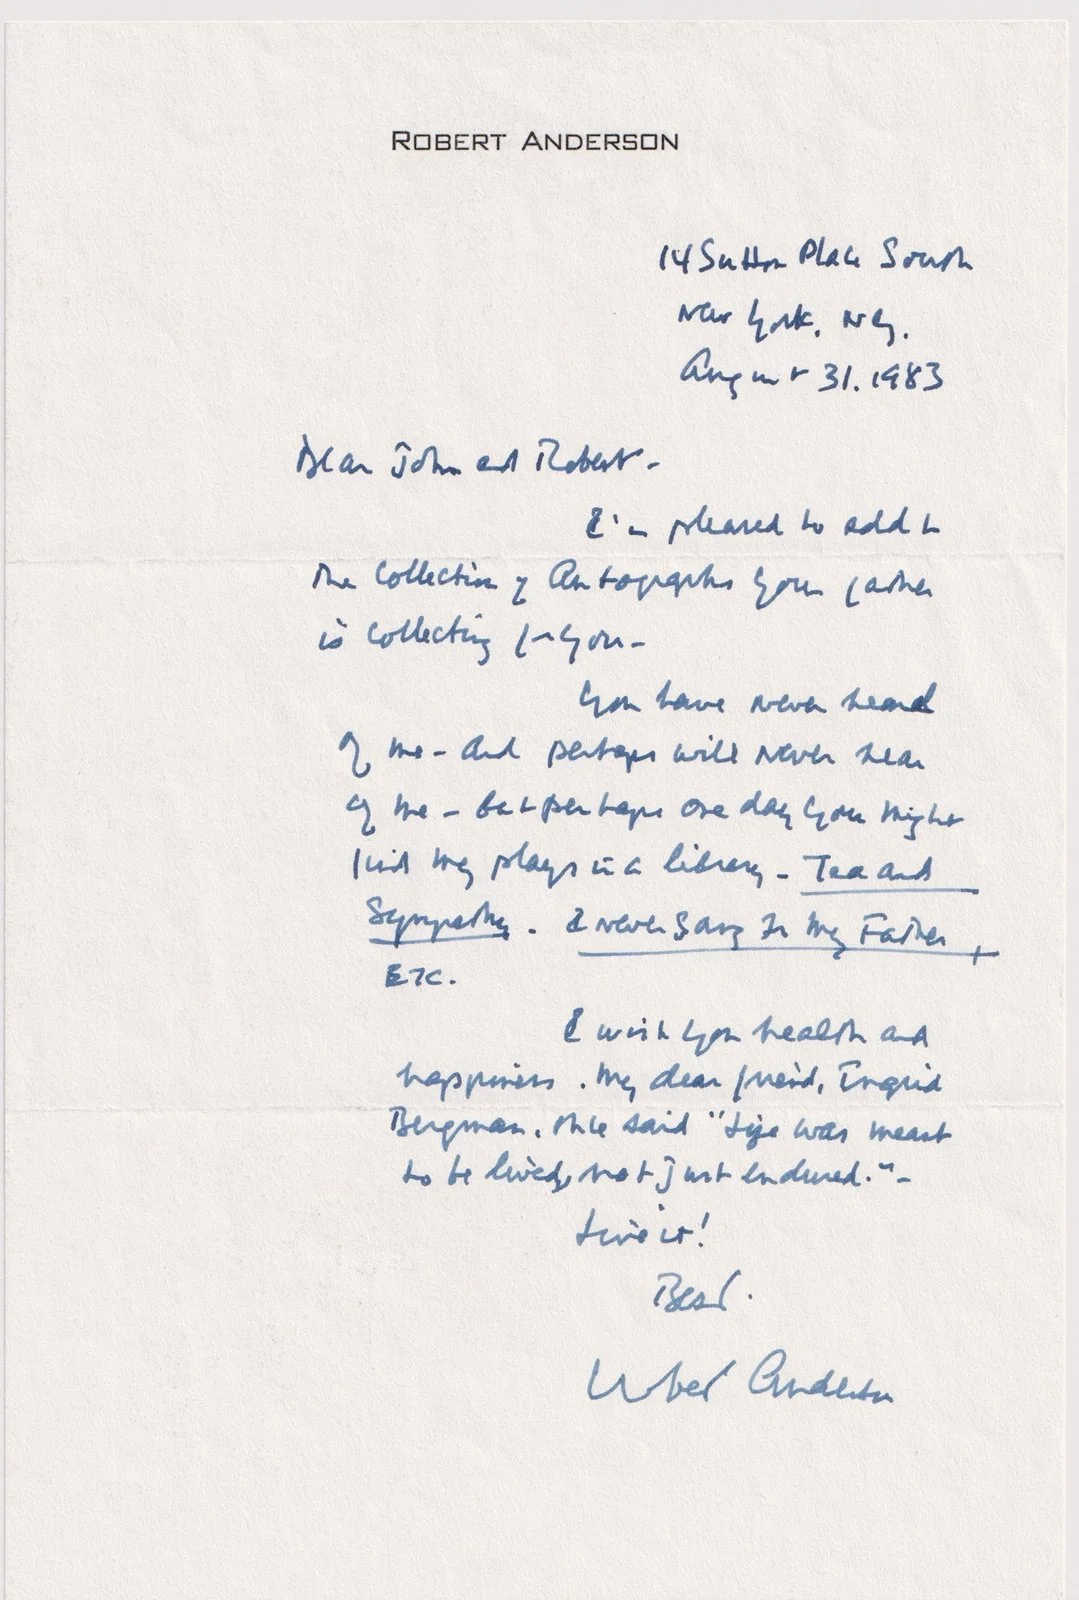 ROBERT ANDERSON
14 Sutton Place South
New York, N.Y.
August 31. 1983
Dear John and Robert-
I'm pleased to add to
the collection of Autographs your father
is collecting for you-
You have never heard
of me - and perhaps will never hear
of me - but perhaps one day you might
find my plays in a library - Tea and
Sympathy. I never Sang for my Father +
ETC.
I wish you health and
happiness. My dear friend, Ingrid
Bergman, once said "Life was meant
to be lived, not just endured." -
Live it!
Best.
Robert Anderson